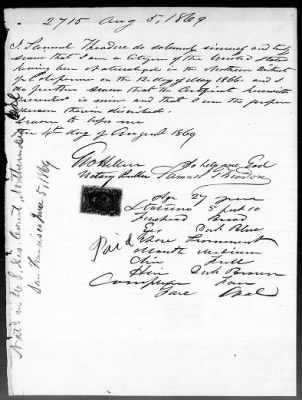 2715 Aug 5, 1869
I Samuel Theodore do solemnly sincerely and truly
swear that I am a Citizen of the United States
being duly naturalized in the Northern District
of California on the 12 day of May 1866 and I
do further swear that the Certificate herewith
presented is mine and that I am the person
therein described.
Sworn to before me
the 4th day of August 1869
So help me God
Notary Public Samuel Theodore
Age 27 years
Stature 5 feet 10
Forehead Broad
Eyes Dark Blue
Nose Prominent
Mouth Medium
Chin Full
Hair Dark Brown
Complexion
Face Oval
Paid
Nat'd in U.S. Court, Northern Dist Cal
San Francisco June 5, 1869